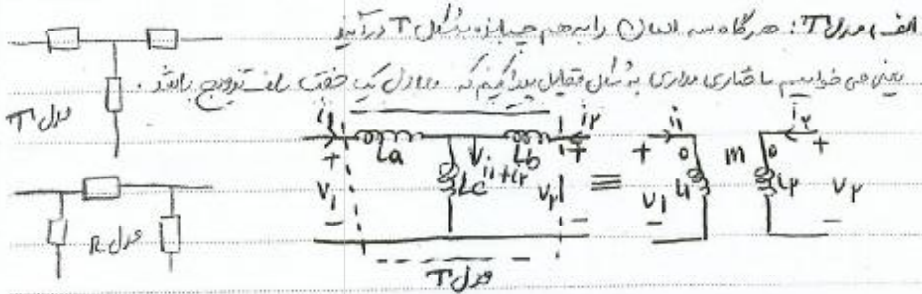 الف) مدل T: هرگاه سه المان را به هم چسبانده بشکل T درآیند
یعنی می خواهیم ساختاری مداری به شکل مقابل پیدا کنیم که معادل یک جفت سلف تزویج باشد.
مدل T
i₁ La Lb i₂
+ V₁ - Lc i₁+i₂ + V₂ -
≡
i₁ m i₂
+ V₁ - L₁ L₂ + V₂ -
مدل π
مدل T